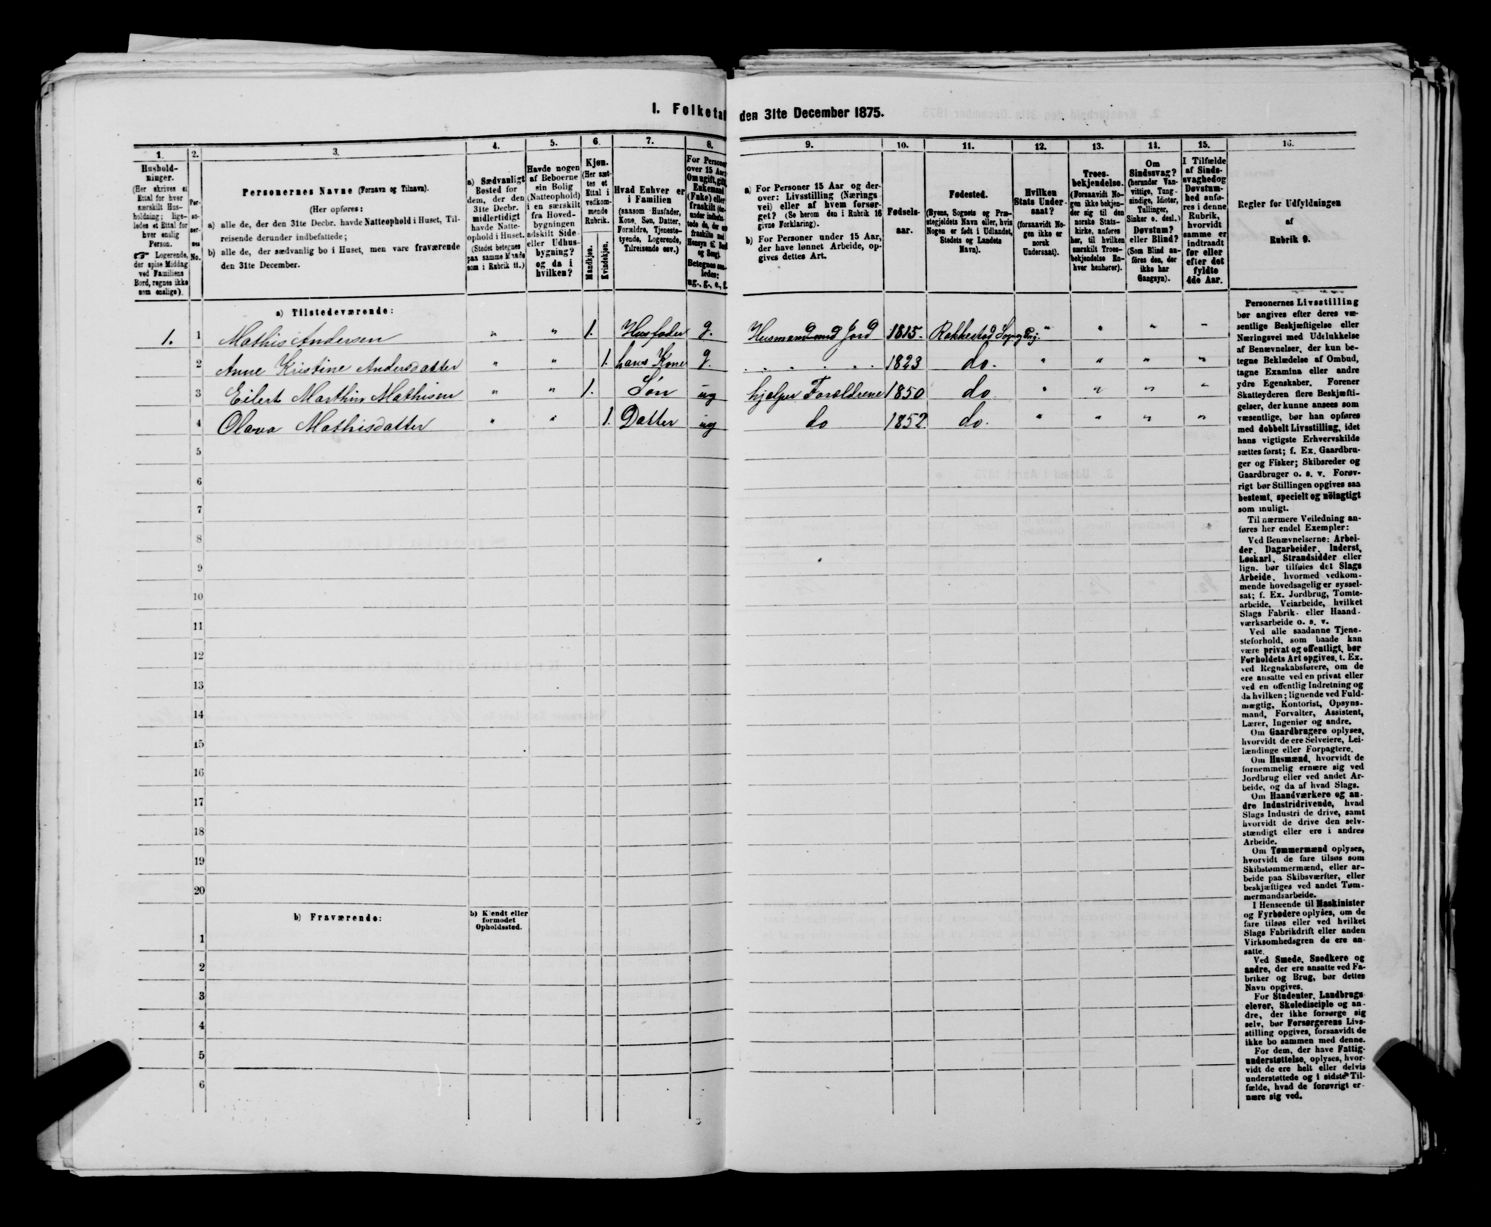 I. Folketal den 31te December 1875.
1.
Hushold-
ninger.
(Her skrives et
Ettal for hver
særskilt Hus-
holdning; lige-
ledes et Ettal for
hver enslig
Person.
☞ Logerende,
der spise Middag
ved Familiens
Bord, regnes ikke
som enslige).
2.
No.
3.
Personernes Navne (Fornavn og Tilnavn).
(Her opføres:
a) alle de, der den 31te Decbr. havde Natteophold i Huset, Til-
reisende derunder indbefattede;
b) alle de, der sædvanlig bo i Huset, men vare fraværende
den 31te December.
4.
a) Sædvanligt
Bosted for
dem, der den
31te Decbr.
midlertidigt
havde Natte-
ophold i Huset.
(Stedet betegnes
paa samme Maade
som i Rubrik 11.)
5.
Havde nogen
af Beboerne
sin Bolig
(Natteophold)
i en særskilt
fra Hoved-
bygningen
adskilt Side-
eller Udhus-
bygning?
og da i
hvilken?
6.
Kjøn.
(Her sæt-
tes et
Ettal i
vedkom-
mende
Rubrik.
Mandkjøn.
Kvindekjøn.
7.
Hvad Enhver er
i Familien
(saasom Husfader,
Kone, Søn, Datter,
Forældre, Tjeneste-
tyende, Logerende,
Tilreisende osv.)
8.
For Personer
over 15 Aar:
Om ugift, gift,
Enkemand
(Enke) eller
fraskilt
9.
a) For Personer 15 Aar og der-
over: Livsstilling (Nærings
vei) eller af hvem forsør-
get? (Se herom den i Rubrik 16
givne Forklaring).
b) For Personer under 15 Aar,
der have lønnet Arbeide, op-
gives dettes Art.
10.
Fødsels-
aar.
11.
Fødested.
(Byens, Sognets og Præ-
stegjeldets Navn eller, hvis
Nogen er født i Udlandet,
Stedets og Landets
Navn).
12.
Hvilken
Stats Under-
saat?
(forsaavidt No-
gen ikke er
norsk
Undersaat).
13.
Troes-
bekjendelse.
(Forsaavidt No-
gen ikke bekjen-
der sig til den
norske Stats-
kirke, anføres
her, til hvilken
særskilt Troes-
bekjendelse En-
hver henhører).
14.
Om
Sindssvag?
(herunder Van-
vittige, Tung-
sindige, Idioter,
Tullinger,
Sinker o. desl.)
Døvstum?
eller Blind?
(Som Blind an-
føres den, der
ikke har
Gangsyn).
15.
I Tilfælde
af Sinds-
svaghed og
Døvstum-
hed anfø-
res i denne
Rubrik,
hvorvidt
samme er
indtraadt
før eller
efter det
fyldte
4de Aar.
16.
Regler for Udfyldningen
af
Rubrik 9.
a) Tilstedeværende:
1. 1 Mathis Andersen " " 1. Husfader g. Husmand med Jord 1815. Rakkestad Sogn Prg. " " " "
2 Anne Kristine Andersdatter " " 1 hans Kone g. . . . . . 1823 do. " " " "
3 Eilert Marthin Mathisen " " 1. Søn ug hjælper Forældrene 1850 do. " " " "
4 Olava Mathisdatter " " 1. Datter ug do 1852. do. " " " "
5
6
7
8
9
10
11
12
13
14
15
16
17
18
19
20
b) Fraværende:
b) Kjendt eller
formodet
Opholdssted.
1
2
3
4
5
6
Personernes Livsstilling
bør angives efter deres væ-
sentlige Beskjæftigelse eller
Næringsvei med Udelukkelse
af Benævnelser, der kun be-
tegne Beklædelse af Ombud,
tagne Examina eller andre
ydre Egenskaber. Forener
Skatteyderen flere Beskjæfti-
gelser, der kunne ansees som
væsentlige, bør han opføres
med dobbelt Livsstilling, idet
hans vigtigste Erhvervskilde
sættes først; f. Ex. Gaardbru-
ger og Fisker; Skibsreder og
Gaardbruger o. s. v. Forøv-
rigt bør Stillingen opgives saa
bestemt, specielt og nøiagtigt
som muligt.
Til nærmere Veiledning an-
føres her endel Exempler:
Ved Benævnelserne: Arbei-
der, Dagarbeider, Inderst,
Løskarl, Strandsidder eller
lign. bør tilføies det Slags
Arbeide, hvormed vedkom-
mende hovedsagelig er syssel-
sat; f. Ex. Jordbrug, Tomte-
arbeide, Veiarbeide, hvilket
Slags Fabrik- eller Haand-
værksarbeide o. s. v.
Ved alle saadanne Tjene-
steforhold, som baade kan
være privat og offentligt, bør
Forholdets Art opgives, t. Ex.
ved Regnskabsførere, om de
ere ansatte ved en privat eller
ved en offentlig Indretning og
da hvilken; lignende ved Fuld-
mægtig, Kontorist, Opsyns-
mand, Forvalter, Assistent,
Lærer, Ingeniør og andre.
Om Gaardbrugere oplyses,
hvorvidt de ere Selveiere, Lei-
lændinge eller Forpagtere.
Om Husmænd, hvorvidt de
fornemmelig ernære sig ved
Jordbrug eller ved andet Ar-
beide, og da af hvad Slags.
Om Haandværkere og an-
dre Industridrivende, hvad
Slags Industri de drive, samt
hvorvidt de drive den selv-
stændigt eller ere i andres
Arbeide.
Om Tømmermænd oplyses,
hvorvidt de fare tilsøs som
Skibstømmermænd, eller ar-
beide paa Skibsværfter, eller
beskjæftiges ved andet Tøm-
mermandsarbeide.
I Henseende til Maskinister
og Fyrbødere oplyses, om de
fare tilsøs eller ved hvilket
Slags Fabrikdrift eller anden
Virksomhedsgren de ere an-
satte.
Ved Smede, Snedkere og
andre, der ere ansatte ved Fa-
briker og Brug, bør dettes
Navn opgives.
For Studenter, Landbrugs
elever, Skoledisciple og an-
dre, der ikke forsørge sig
selv, bør Forsørgerens Livs-
stilling opgives, forsaavidt de
ikke bo sammen med denne.
For dem, der have Fattig-
understøttelse, oplyses, hvor-
vidt de ere helt eller delvis
understøttede og i sidste Til-
fælde, hvad de forøvrigt er-
nære sig ved.